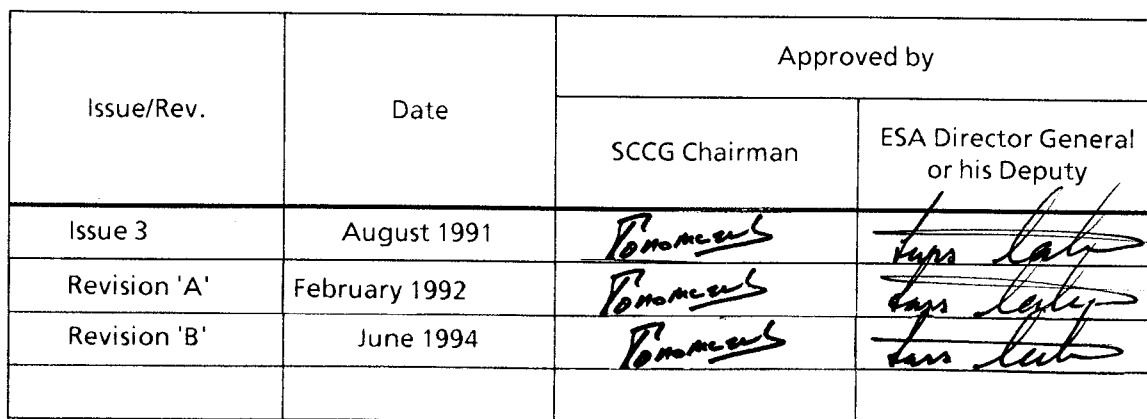 Issue/Rev.
Date
Approved by
SCCG Chairman
ESA Director General
or his Deputy
Issue 3
August 1991
Revision 'A'
February 1992
Revision 'B'
June 1994